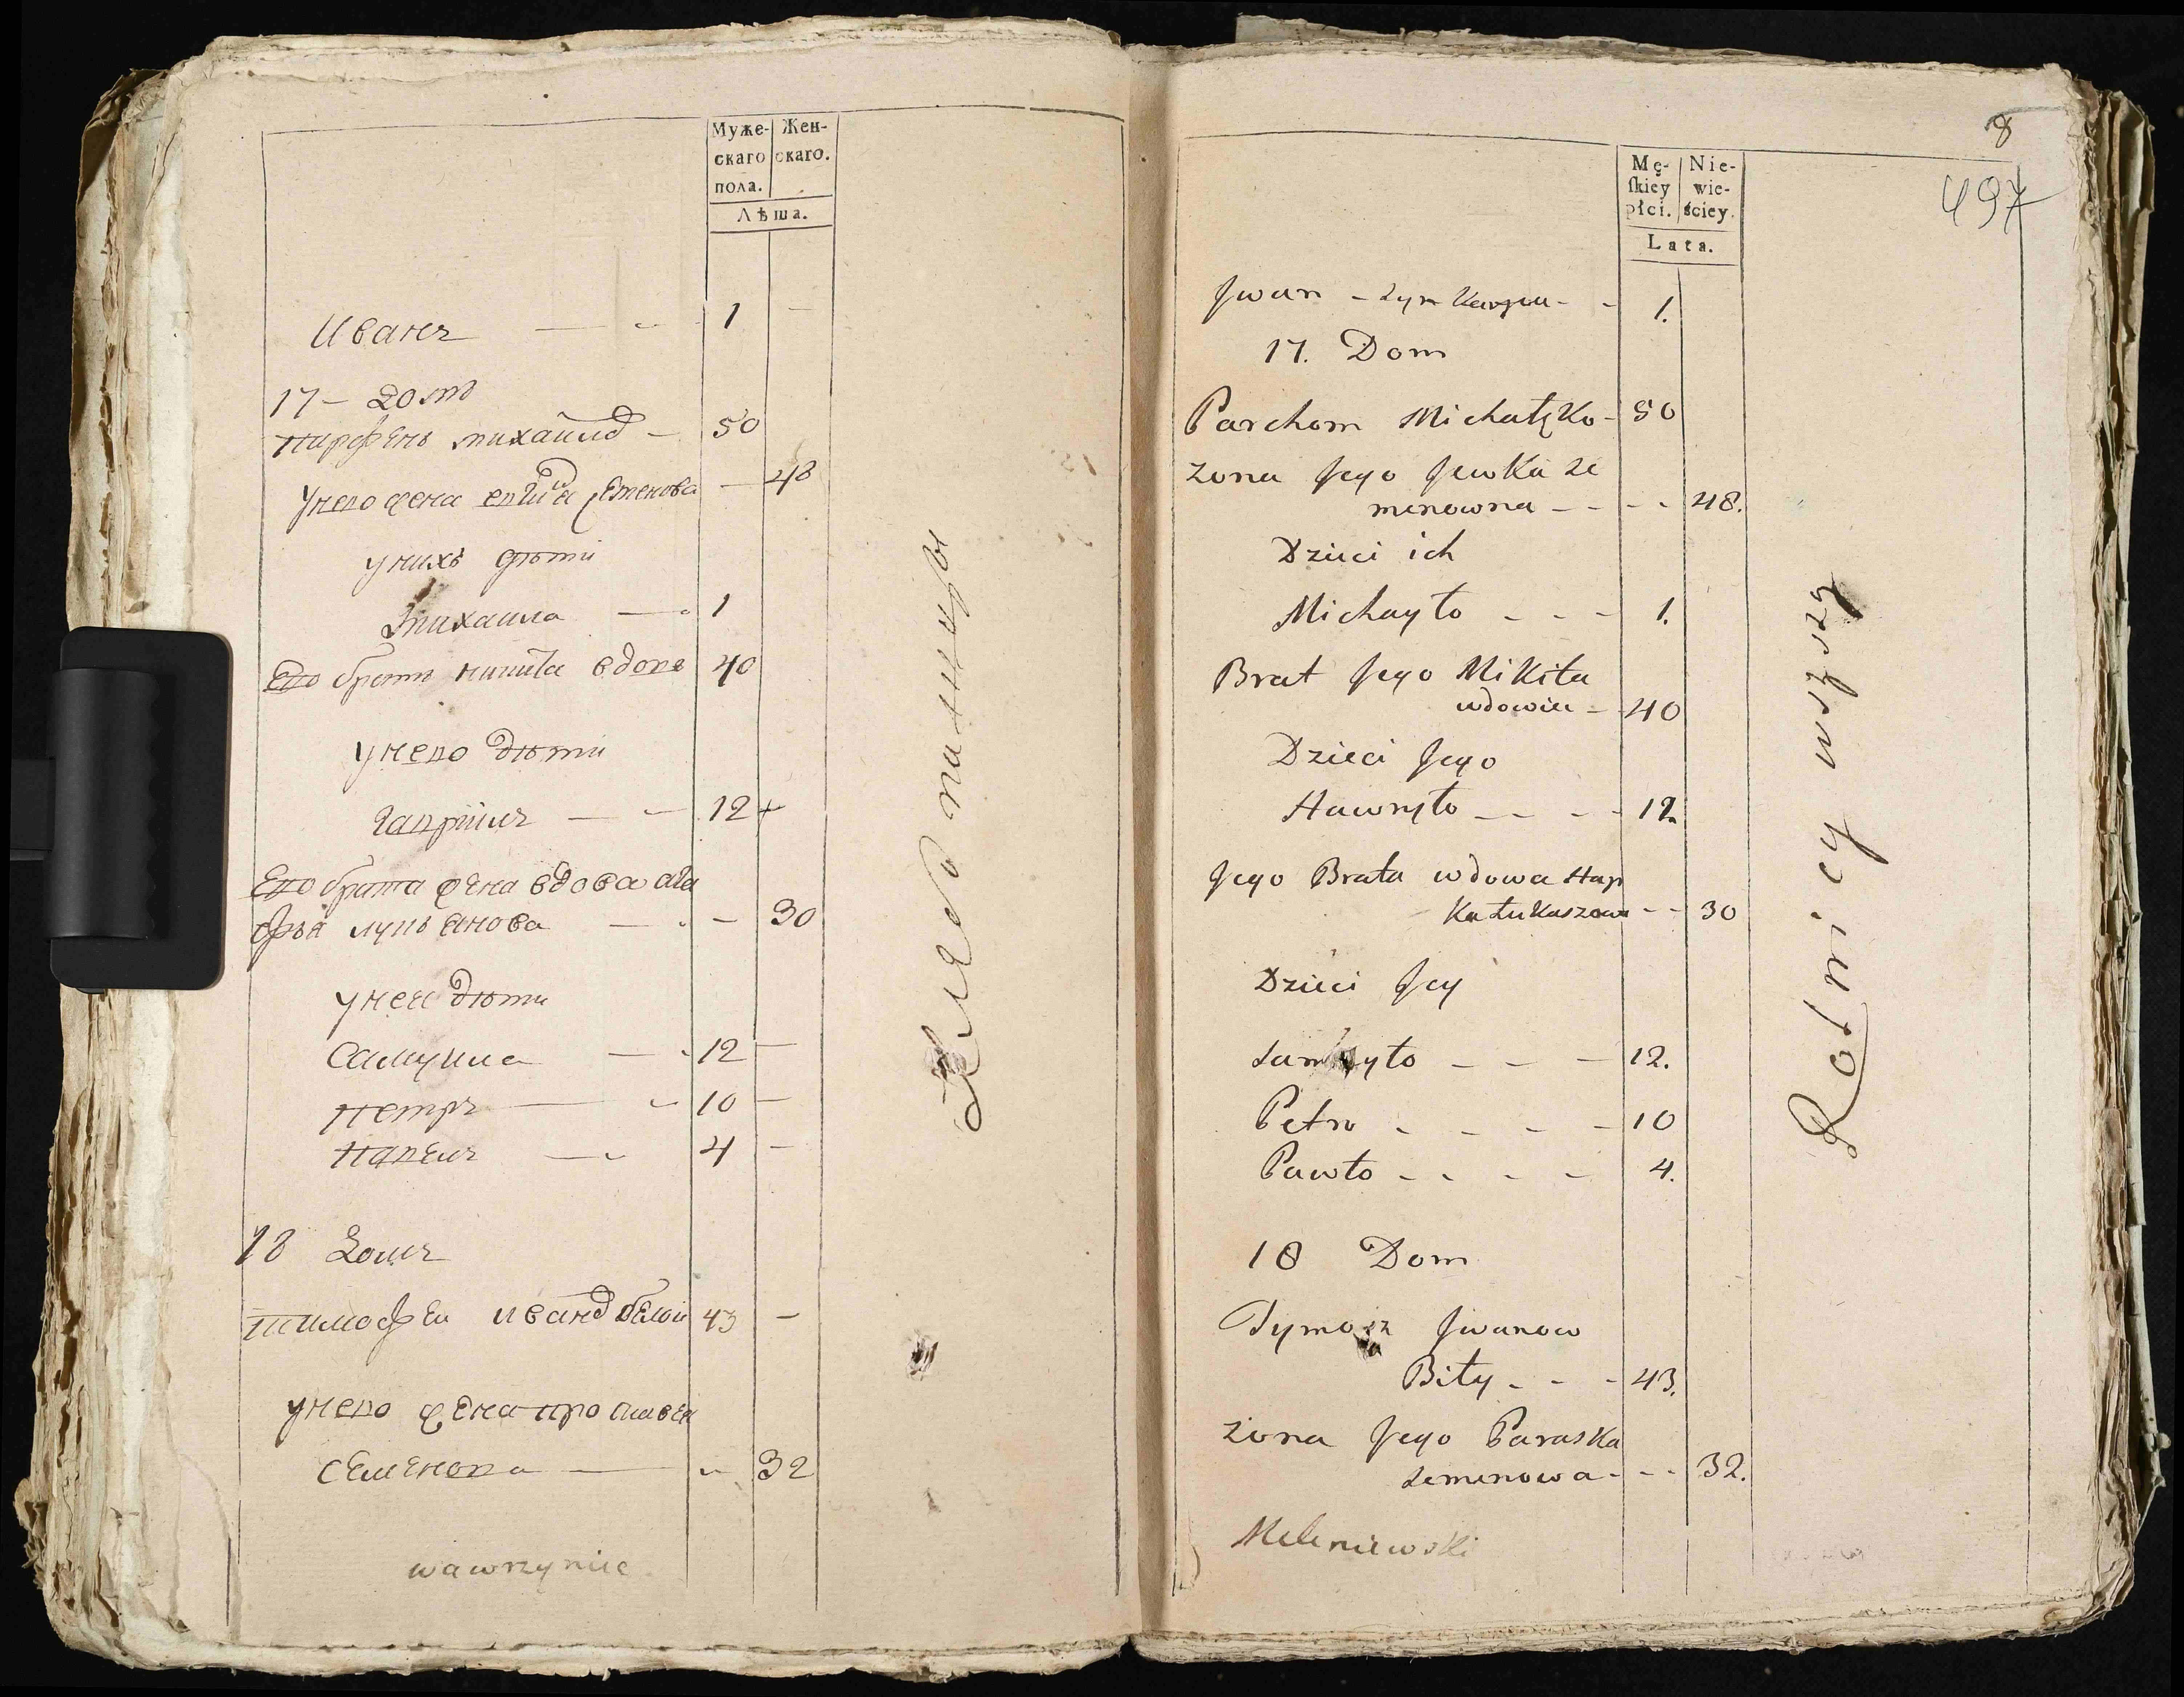 Муже-
скаго
пола.
Жен-
скаго.
Лѣта.
Иванъ 1
17 - домъ
Парфенъ михаилов 50
унего жена евгия семенова 48
унихъ дѣти
михаила 1
Его братъ никита вдовъ 40
унего дѣти
гаврiилъ 12
Его брата жена вдова ага
фья лукьянова 30
унеи дѣти
Самуила 12
Петръ 10
Павелъ 4
18 Домъ
тимофеи иванов белои 43
унего жена
семенова 32
wawrzyniec
8
497
Mę-
skiey
płci.
Nie-
wie-
ściey.
Lata.
Jwan - Syn 1.
17. Dom
Parchom Michałko 50
zona Jego Jewka Se
menowna 48.
Dzieci ich
Michayło 1.
Brat Jego Mikita
wdowiec 40
Dzieci Jego
Hawryło 12.
Jego Brata wdowa Hap
ka Łukaszowa 30
Dzieci Jey
Samuyło 12.
Petro 10
Pawło 4.
18 Dom
Tymosz Jwanow
Biły 43.
żona Jego Paraska
Semenowa 32.
Meleniewski
Rolnicy wszyscy